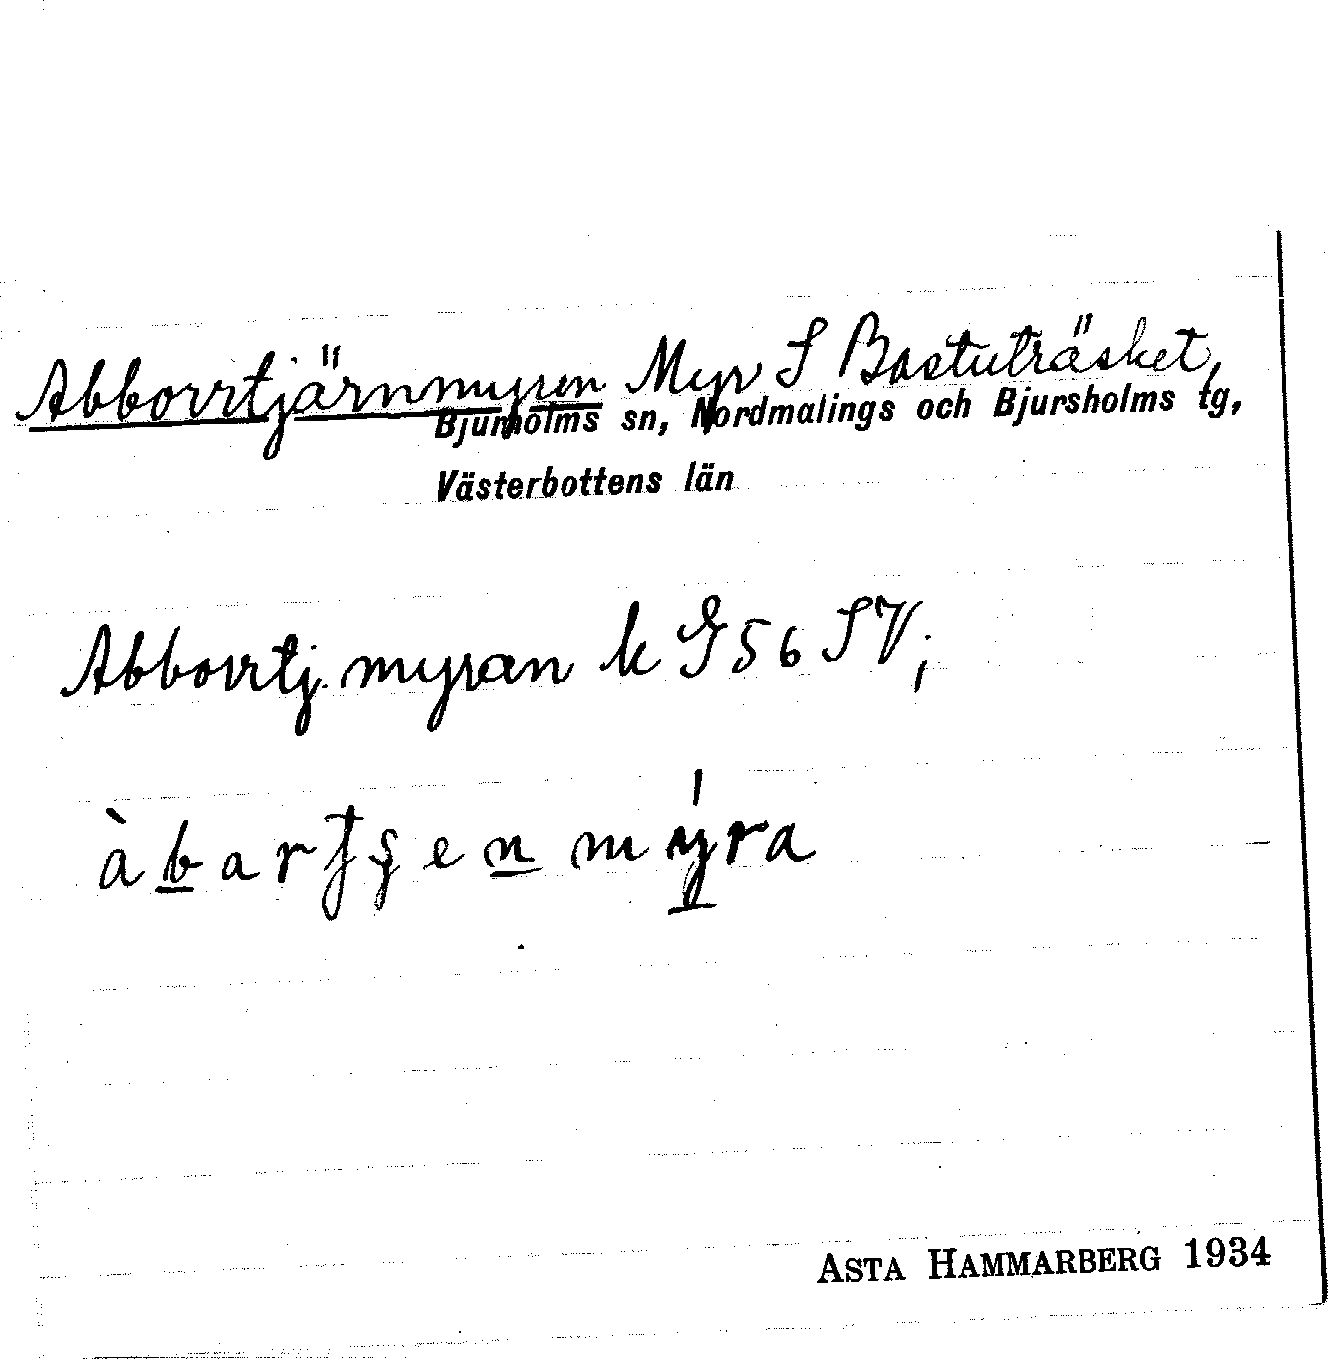 Abborrtjärnmyren Myr S Bastuträsket,
Bjurholms sn, Nordmalings och Bjursholms tg,
Västerbottens län
Abborrtj. myran k G 56 SV;
àbartʃen mýra
ASTA HAMMARBERG 1934